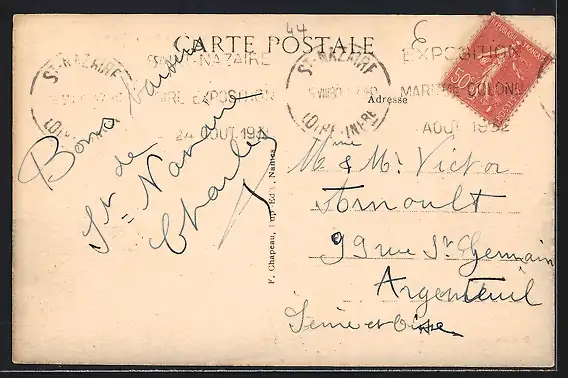 44
CARTE POSTALE
ST-NAZAIRE
LOIRE-INFRE
EXPOSITION
AOUT 1932
ST-NAZAIRE
LOIRE INFRE
EXPOSITION
MARITIME COLONIALE
AOUT 1932
50c
Adresse
Bons baisers
de
St = Nazaire
Charles
F. Chapeau, Imp. Édit., Nantes
Mme & Mr Victor
Arnoult
99 rue St Germain
Argenteuil
Seine et Oise